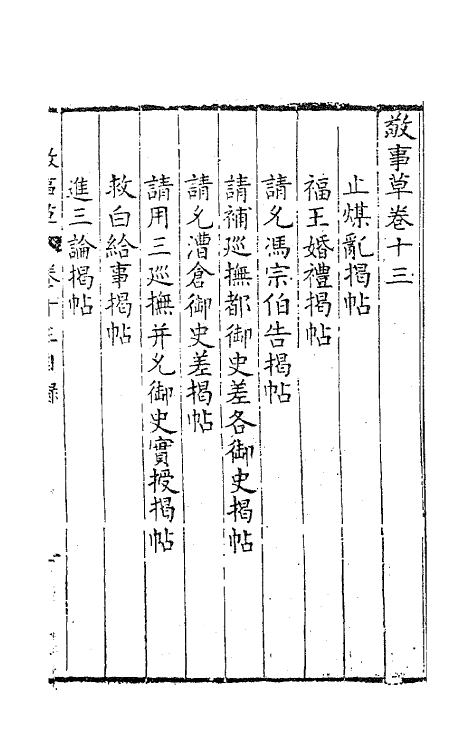 敬事草卷十三
止煤亂揭帖
福王婚禮揭帖
請允馮宗伯告揭帖
請補巡撫都御史差各御史揭帖
請允漕倉御史差揭帖
請用三巡撫并允御史實授揭帖
救白給事揭帖
進三論揭帖
敬事草 卷十三目錄 一